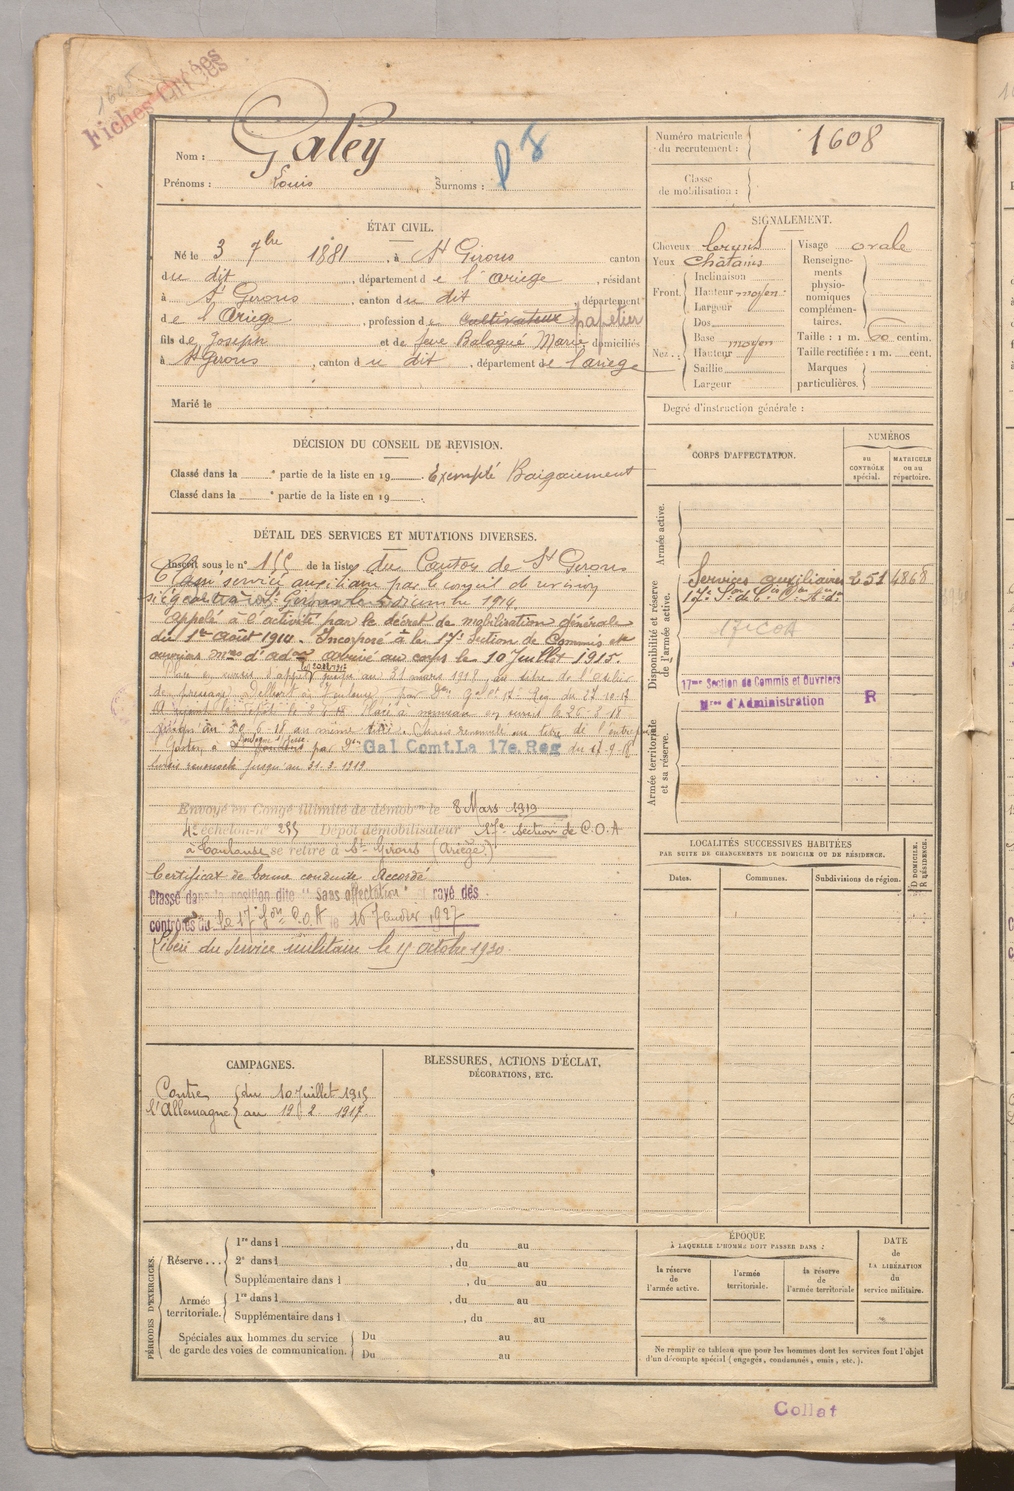 Fiches
Nom : Galey
Prénoms : Louis Surnoms :
Numéro matricule du recrutement : 1608
Classe de mobilisation :
ÉTAT CIVIL.
Né le 3 7bre 1881, à St Girons canton
du dit, département de l'Ariège, résidant
à St Girons, canton du dit, département
de l'Ariège, profession de cultivateur papetier
fils de Joseph et de feue Balagué Marie domiciliés
à St Girons, canton du dit, département de l'Ariège
Marié le
SIGNALEMENT.
Cheveux bruns
Yeux châtains
Front. Inclinaison
Hauteur moyen
Largeur
Nez. Dos
Base moyen
Hauteur
Saillie
Largeur
Visage ovale
Renseignements physionomiques complémentaires.
Taille : 1 m. 60 centim.
Taille rectifiée : 1 m. cent.
Marques particulières.
Degré d'instruction générale :
DÉCISION DU CONSEIL DE REVISION.
Classé dans la e partie de la liste en 19 Exempté Bégaiement
Classé dans la e partie de la liste en 19
DÉTAIL DES SERVICES ET MUTATIONS DIVERSES.
Inscrit sous le n° 155 de la liste du Canton de St Girons
Classé service auxiliaire par le conseil de révision
siégeant à St Girons le décembre 1914
Appelé à l'activité par le décret de mobilisation générale
du 1er Août 1914. Incorporé à la 17e Section de Commis et
ouvriers mres d'adon arrivé au corps le 10 Juillet 1915.
jusqu'au 31 mars 1918, au titre de l'atelier
à Toulouse par Don Gal 17e Rég du 27.10.17
Placé à nouveau en sursis le 26-8-18
jusqu'au 30-6-18 au même titre. Sursis renouvelé au titre de
par Don Gal Comt. La 17e. Reg du 17-9-18
Sursis renouvelé jusqu'au 31-3-1919
Envoyé en Congé illimité de démobon le 8 Mars 1919
4e échelon n° 255 Dépôt démobilisateur 17e Section de C.O.A
à Toulouse se retire à St Girons (Ariège)
Certificat de bonne conduite Accordé
Classé dans la position dite "Sans affectation" et rayé des
contrôles du le 17e Son C.O.A le 16 Janvier 1927
Libéré du service militaire le 15 octobre 1930.
CORPS D'AFFECTATION.
NUMÉROS
AU CONTRÔLE spécial.
MATRICULE ou au répertoire.
Armée active.
Disponibilité et réserve de l'armée active.
Services auxiliaires 251 4868
17e COA
17me Section de Commis et Ouvriers
Mres d'Administration R
Armée territoriale et sa réserve.
LOCALITÉS SUCCESSIVES HABITÉES
PAR SUITE DE CHANGEMENTS DE DOMICILE OU DE RÉSIDENCE.
Dates. Communes. Subdivisions de région. D DOMICILE. R RÉSIDENCE.
CAMPAGNES.
Contre l'Allemagne
du 10 Juillet 1915
au 19 2 1917.
BLESSURES, ACTIONS D'ÉCLAT,
DÉCORATIONS, ETC.
PÉRIODES D'EXERCICES.
Réserve... 1re dans l , du au
2e dans l , du au
Supplémentaire dans l , du au
Armée territoriale. 1re dans l , du au
Supplémentaire dans l , du au
Spéciales aux hommes du service
de garde des voies de communication.
Du au
Du au
ÉPOQUE
À LAQUELLE L'HOMME DOIT PASSER DANS :
la réserve de l'armée active.
l'armée territoriale.
la réserve de l'armée territoriale
DATE de LA LIBÉRATION du service militaire.
Ne remplir ce tableau que pour les hommes dont les services font l'objet
d'un décompte spécial (engagés, condamnés, omis, etc.).
Collat